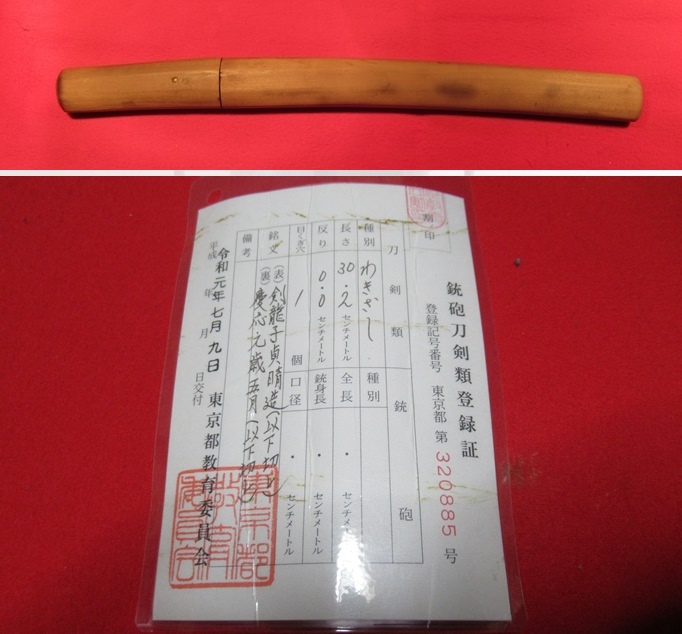 銃砲刀剣類登録証
登録記号番号 東京都 第 320885 号
割印
刀剣類
銃砲
種別 わきざし
種別
長さ 30.2 センチメートル
全長 . センチメートル
反り 0.0 センチメートル
銃身長 . センチメートル
目くぎ穴 1 個
口径 . センチメートル
銘文 (表) 剣龍子貞晴造(以下切)
(裏) 慶応元歳五月(以下切)
備考
平成 令和元年七月九日交付
東京都教育委員会
東京都教育委員会